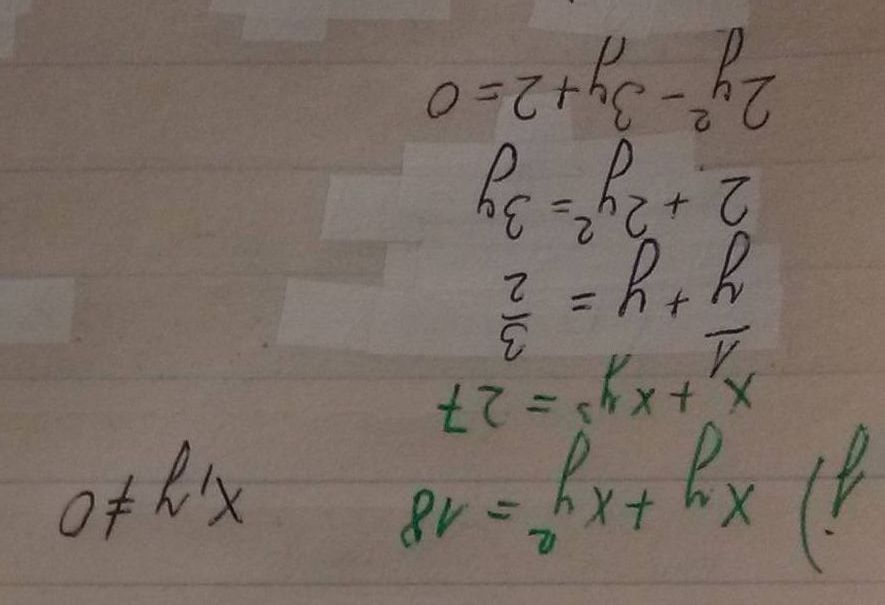 j) xy + xy² = 18    x,y ≠ 0
x + xy³ = 27
1/y + y = 3/2
2 + 2y² = 3y
2y² - 3y + 2 = 0